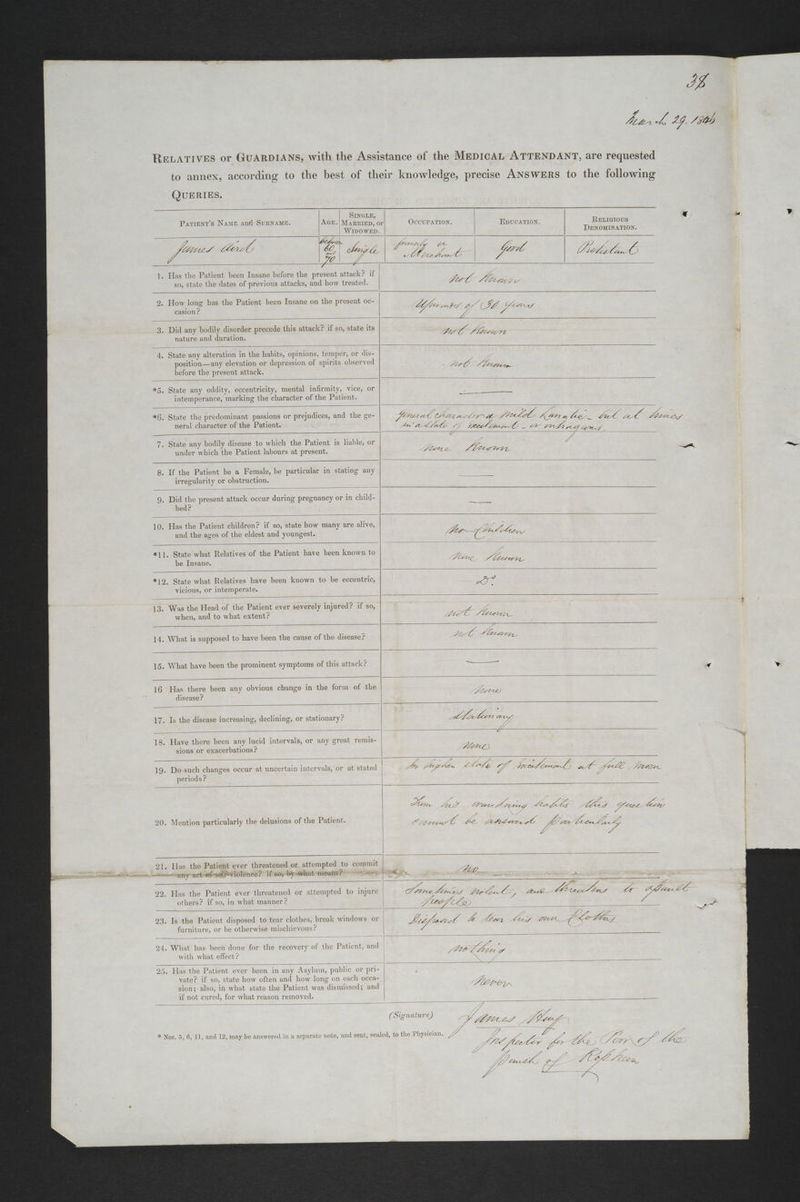 38
March 29. 1846
RELATIVES or GUARDIANS, with the Assistance of the MEDICAL ATTENDANT, are requested
to annex, according to the best of their knowledge, precise ANSWERS to the following
QUERIES.
PATIENT'S NAME and SURNAME.
AGE.
SINGLE,
MARRIED, or
WIDOWED.
OCCUPATION.
EDUCATION.
RELIGIOUS
DENOMINATION.
James Aird
between
60
and
70
Single
formerly a
Merchant
Good
Protestant
1. Has the Patient been Insane before the present attack? if
so, state the dates of previous attacks, and how treated.
Not Known
2. How long has the Patient been Insane on the present oc-
casion?
Upwards of 30 years
3. Did any bodily disorder precede this attack? if so, state its
nature and duration.
not Known
4. State any alteration in the habits, opinions, temper, or dis-
position—any elevation or depression of spirits observed
before the present attack.
not Known
*5. State any oddity, eccentricity, mental infirmity, vice, or
intemperance, marking the character of the Patient.
*6. State the predominant passions or prejudices, and the ge-
neral character of the Patient.
General character a mild Lunatic - but at times
in a state of excitement - or outrageous.
7. State any bodily disease to which the Patient is liable, or
under which the Patient labours at present.
None Known
8. If the Patient be a Female, be particular in stating any
irregularity or obstruction.
9. Did the present attack occur during pregnancy or in child-
bed?
10. Has the Patient children? if so, state how many are alive,
and the ages of the eldest and youngest.
No Children
*11. State what Relatives of the Patient have been known to
be Insane.
None Known
*12. State what Relatives have been known to be eccentric,
vicious, or intemperate.
Do.
13. Was the Head of the Patient ever severely injured? if so,
when, and to what extent?
not Known
14. What is supposed to have been the cause of the disease?
not Known
15. What have been the prominent symptoms of this attack?
16 Has there been any obvious change in the form of the
disease?
None
17. Is the disease increasing, declining, or stationary?
Stationary
18. Have there been any lucid intervals, or any great remis-
sions or exacerbations?
None
19. Do such changes occur at uncertain intervals, or at stated
periods?
In higher state of excitement at full moon
20. Mention particularly the delusions of the Patient.
From his wandering habits this question
cannot be answered particularly
21. Has the Patient ever threatened or attempted to commit
any act of self-violence? if so, by what means?
No
22. Has the Patient ever threatened or attempted to injure
others? if so, in what manner?
Sometimes violent, and threatens to assault
people
23. Is the Patient disposed to tear clothes, break windows or
furniture, or be otherwise mischievous?
Disposed to tear his own Clothes
24. What has been done for the recovery of the Patient, and
with what effect?
Nothing
25. Has the Patient ever been in any Asylum, public or pri-
vate? if so, state how often and how long on each occa-
sion; also, in what state the Patient was dismissed; and
if not cured, for what reason removed.
Never
(Signature)
James
* Nos. 5, 6, 11, and 12, may be answered in a separate note, and sent, sealed, to the Physician.
Inspector for the Poor of the
parish of